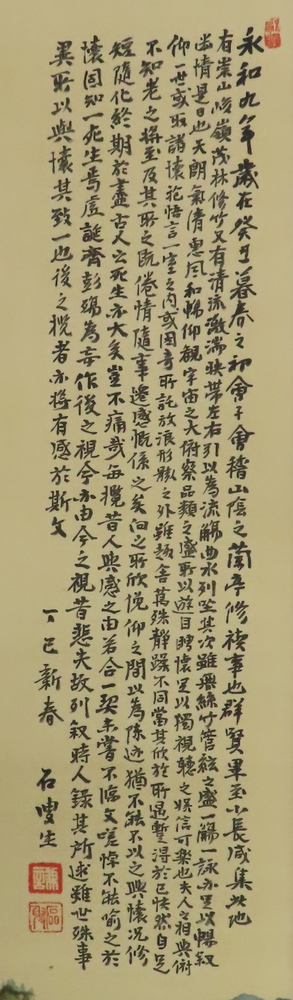 永和九年歲在癸丑暮春之初會于會稽山陰之蘭亭修禊事也群賢畢至少長咸集此地
有崇山峻嶺茂林修竹又有清流激湍映帶左右引以為流觴曲水列坐其次雖無絲竹管絃之盛一觴一詠亦足以暢叙
幽情是日也天朗氣清惠風和暢仰觀宇宙之大俯察品類之盛所以遊目騁懷足以極視聽之娛信可樂也夫人之相與俯
仰一世或取諸懷抱悟言一室之內或因寄所託放浪形骸之外雖趣舍萬殊靜躁不同當其欣於所遇暫得於己怏然自足
不知老之將至及其所之既倦情隨事遷感慨係之矣向之所欣俛仰之間以為陳迹猶不能不以之興懷況修
短隨化終期於盡古人云死生亦大矣豈不痛哉每攬昔人興感之由若合一契未嘗不臨文嗟悼不能喻之於
懷固知一死生為虛誕齊彭殤為妄作後之視今亦由今之視昔悲夫故列叙時人錄其所述雖世殊事
異所以興懷其致一也後之攬者亦將有感於斯文
丁巳新春 石叟生